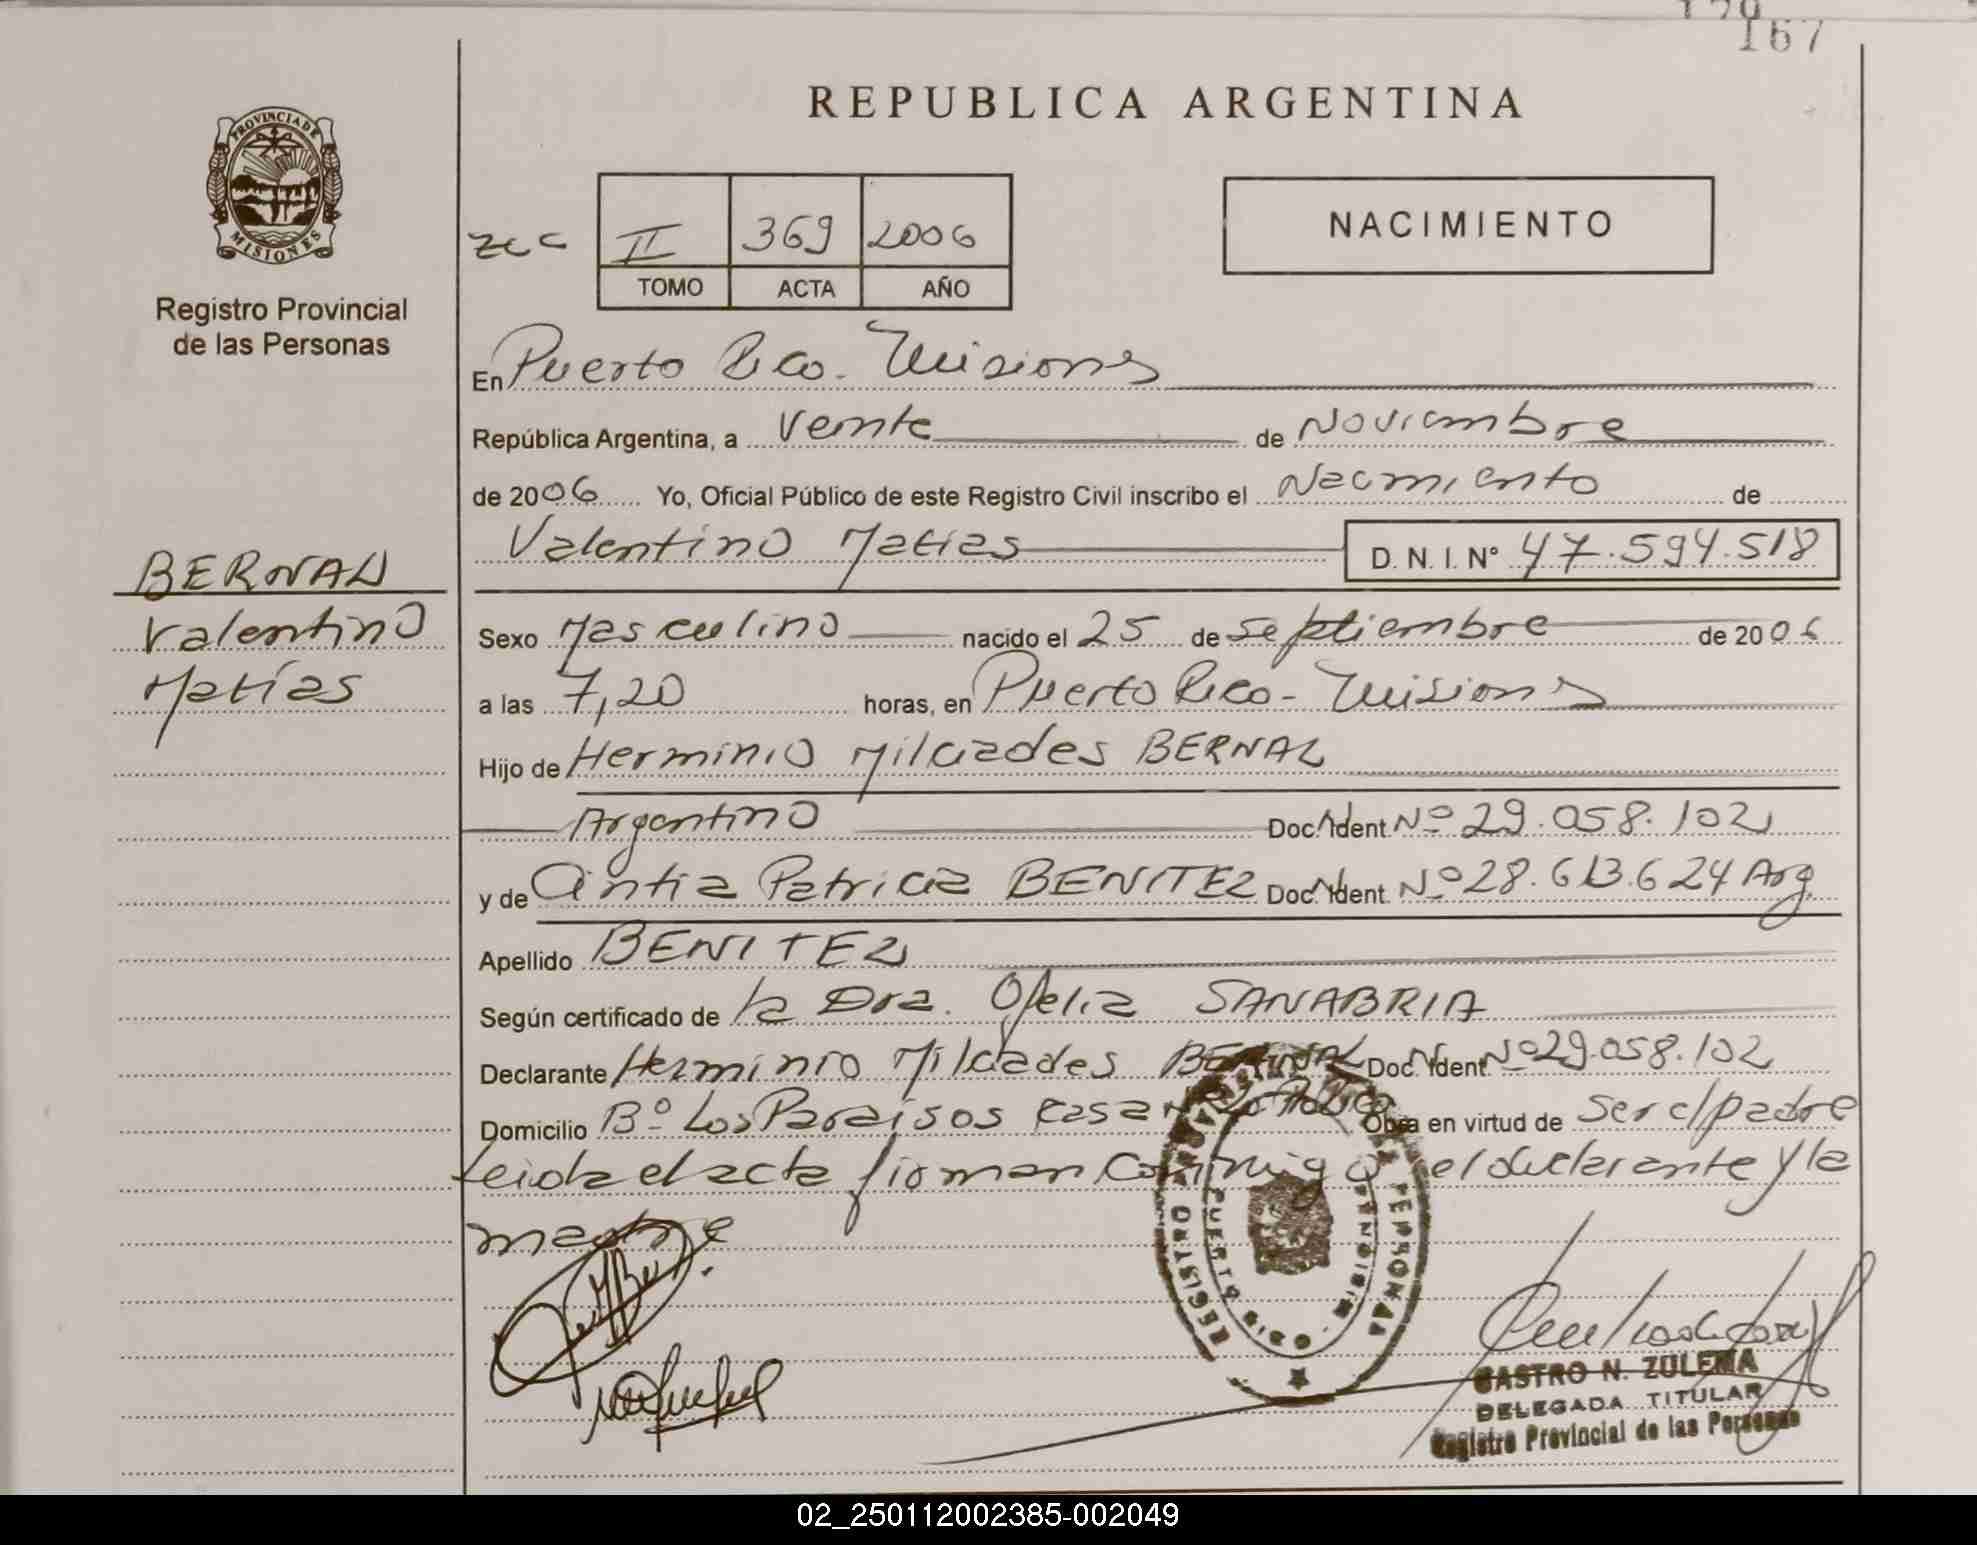 167
PROVINCIA DE
MISIONES
Registro Provincial
de las Personas
REPUBLICA ARGENTINA
II 369 2006
TOMO ACTA AÑO
NACIMIENTO
En Puerto Rico - Misiones
República Argentina, a Veinte de Noviembre
de 2006 Yo, Oficial Público de este Registro Civil inscribo el Nacimiento de
Valentino Matias D. N. I. N° 47.594.518
BERNAL
Valentino
Matías
Sexo Masculino nacido el 25 de Septiembre de 2006
a las 7,20 horas, en Puerto Rico - Misiones
Hijo de Herminio Milciades BERNAL
Argentino Doc. Ident. Nº 29.058.102
y de Cintia Patricia BENITEZ Doc. Ident. Nº 28.613.624 Arg.
Apellido BENITEZ
Según certificado de la Dra. Ofelia SANABRIA
Declarante Herminio Milciades BERNAL Doc. Ident. Nº 29.058.102
Domicilio Bº Los Paraisos casa Obra en virtud de ser el padre
Leida el acta firman conmigo el declarante y la
madre
REGISTRO PERSONAS
PUERTO RICO - MISIONES
CASTRO N. ZULEMA
DELEGADA TITULAR
Registro Provincial de las Personas
02_250112002385-002049